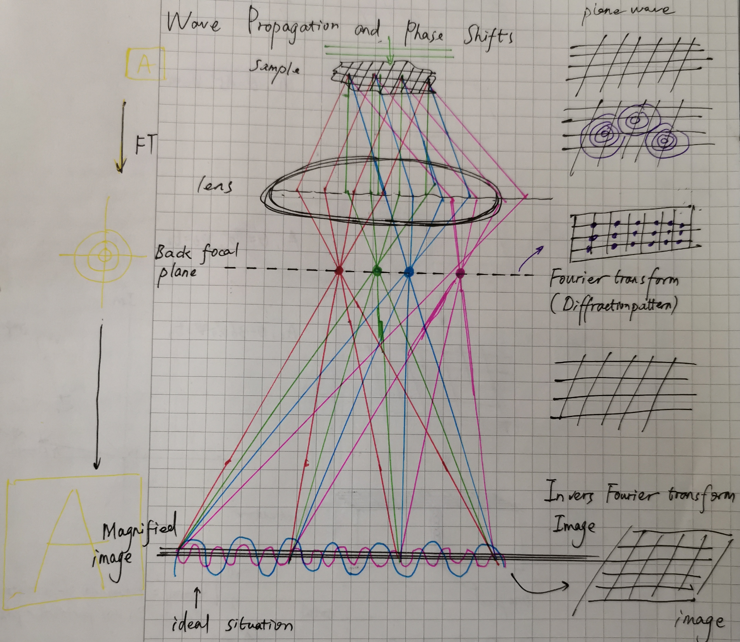 Wave Propagation and Phase Shifts
plane wave
sample
A
FT
lens
Back focal
plane
Fourier transform
(Diffraction pattern)
Invers Fourier transform
Image
A
Magnified
image
image
ideal situation